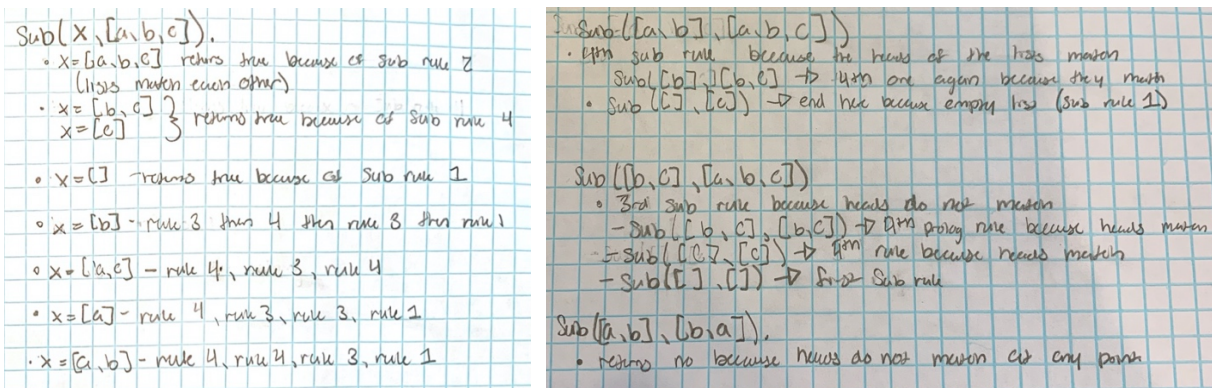 Sub(X,[a,b,c]).
• X=[a,b,c] returns true because of sub rule 2
(lists match each other)
• X=[b,c]
X=[c] } returns true because of sub rule 4
• X=[] - returns true because of sub rule 1
• X=[b] - rule 3 then 4 then rule 3 then rule 1
• X=[a,c] - rule 4, rule 3, rule 4
• X=[a] - rule 4, rule 3, rule 3, rule 1
• X=[a,b] - rule 4, rule 4, rule 3, rule 1
Sub([a,b],[a,b,c])
• 4th sub rule because the heads of the lists match
Sub([b],[b,c] → 4th one again because they match
• Sub([],[c]) → end here because empty list (sub rule 1)
Sub([b,c],[a,b,c])
• 3rd sub rule because heads do not match
- Sub([b,c],[b,c]) → 4th prolog rule because heads match
- Sub([c],[c]) → 4th rule because heads match
- Sub([],[]) → first sub rule
Sub([a,b],[b,a]).
• returns no because heads do not match at any point